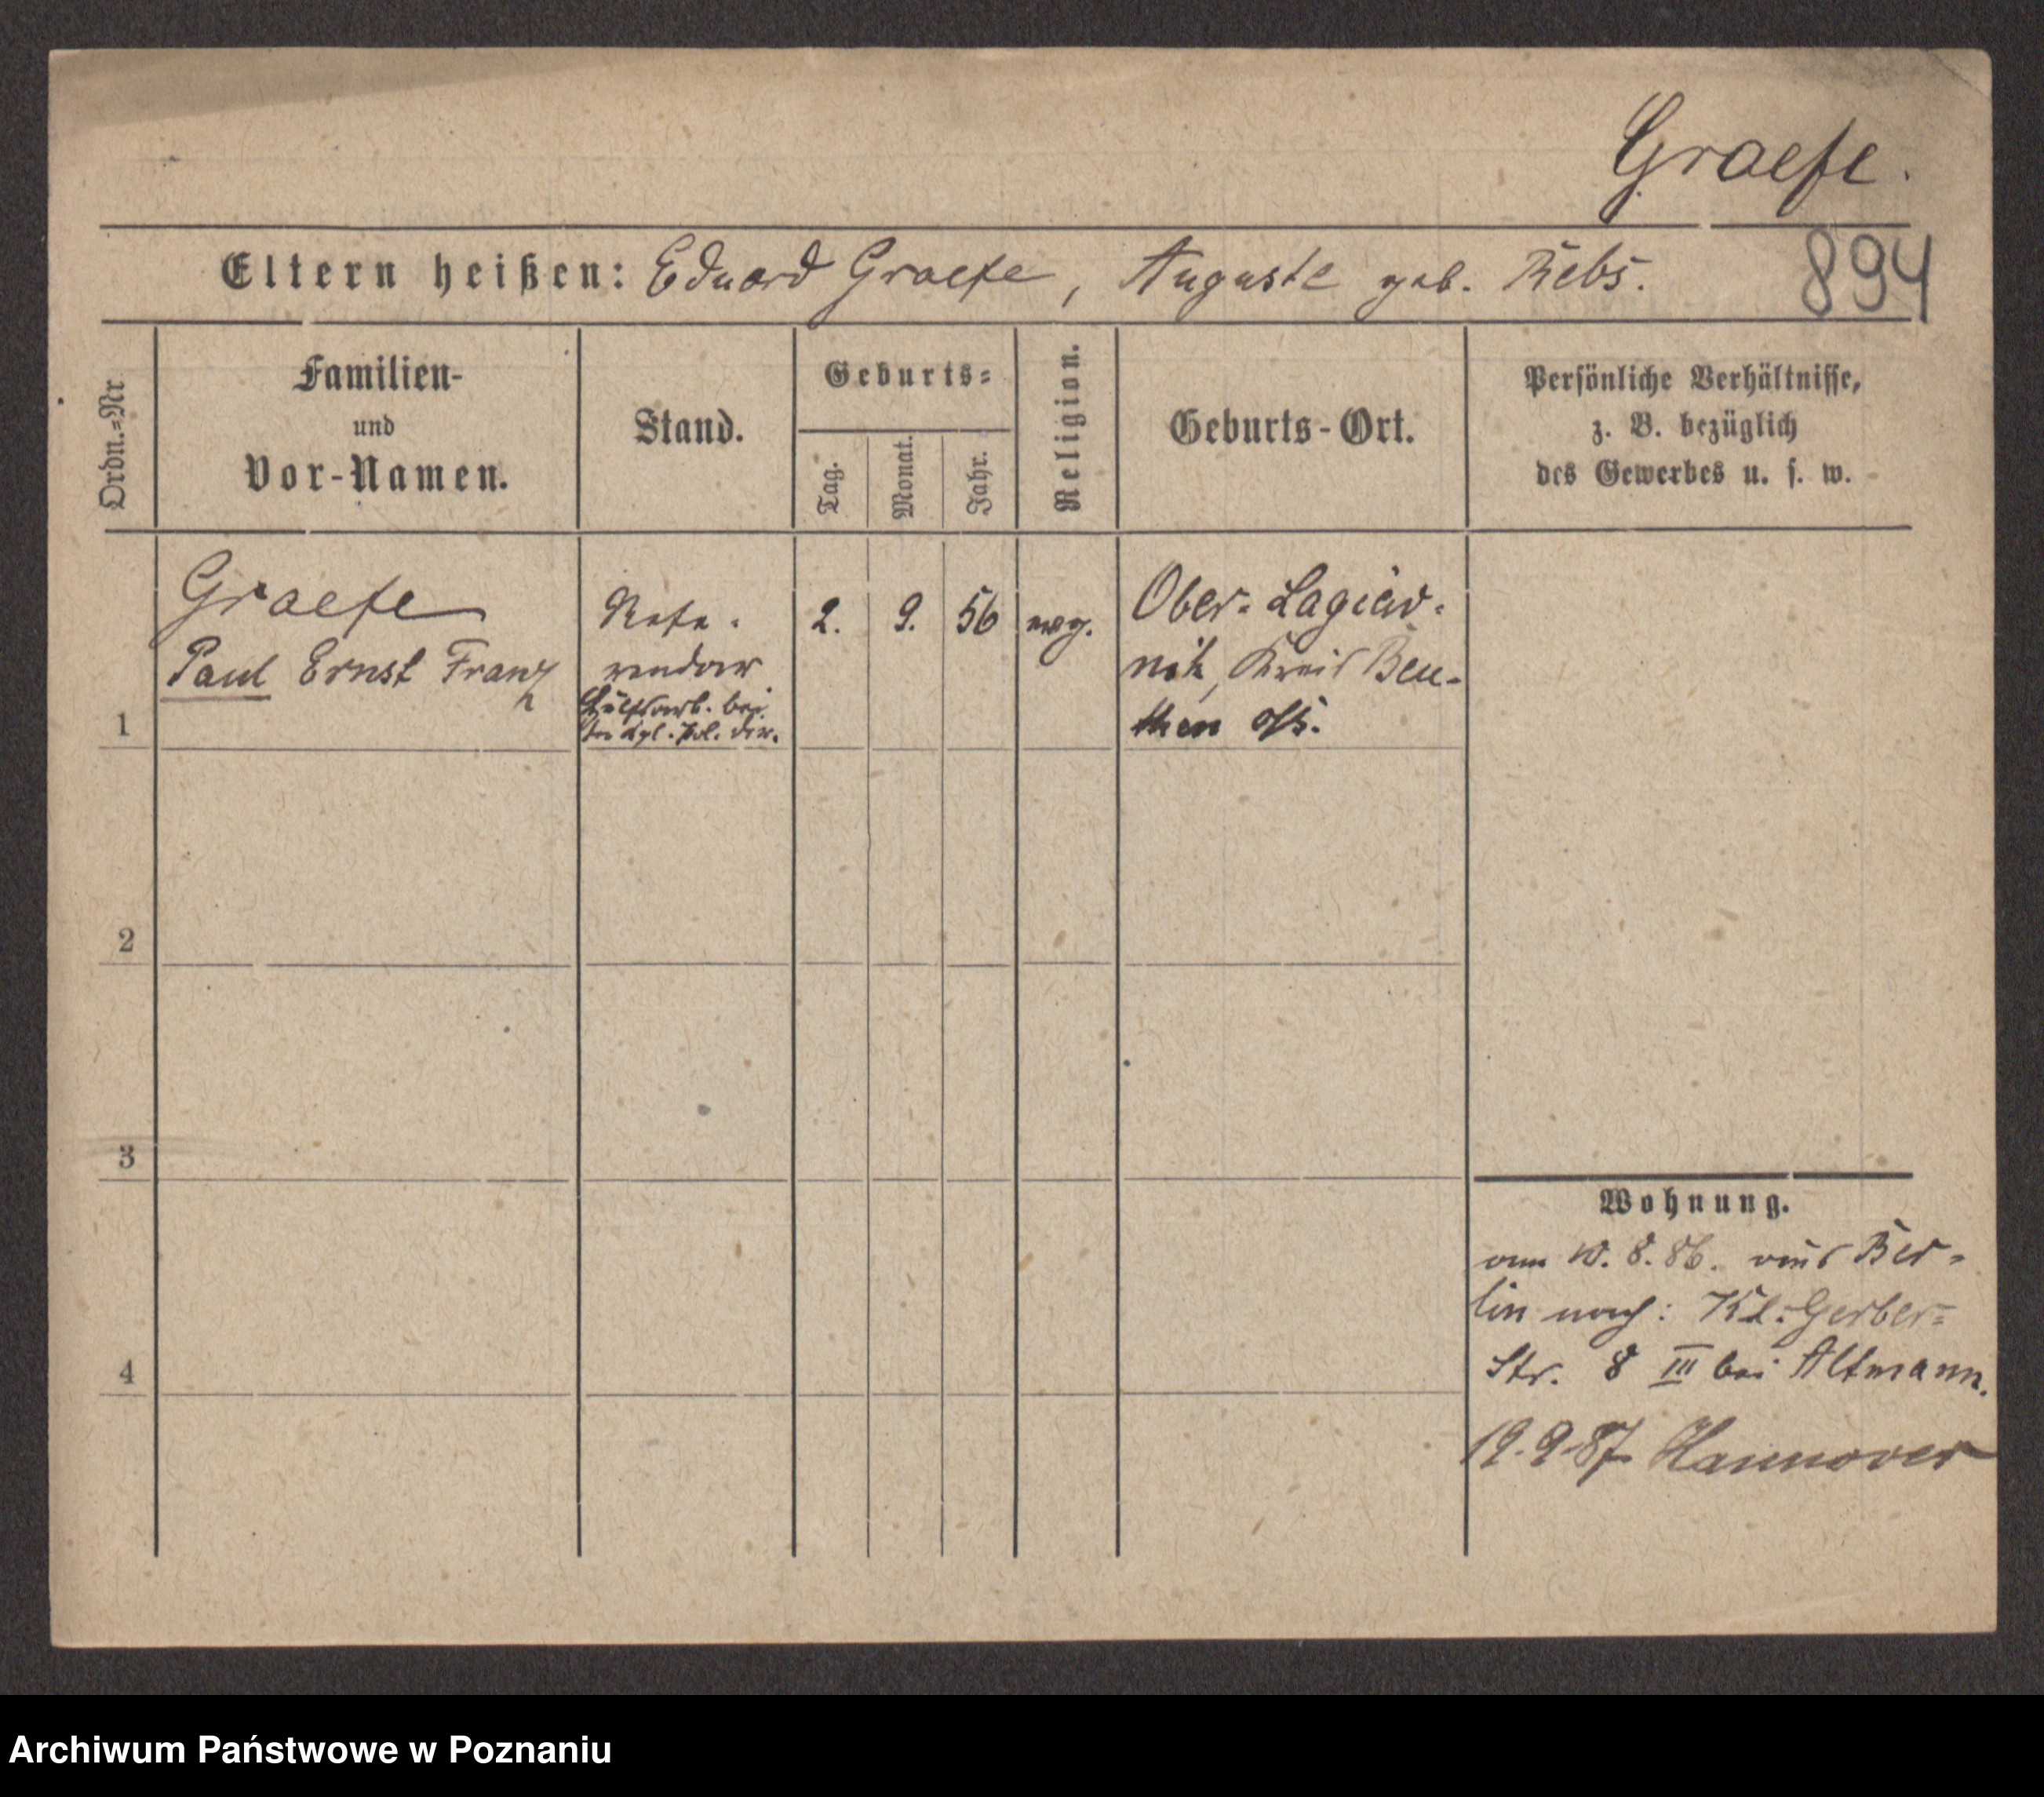 Graefe.
Eltern heißen: Eduard Graefe, Auguste geb. Rebs.
894
Ordn.-Nr
Familien-
und
Vor-Namen.
Stand.
Geburts-
Tag.
Monat.
Jahr.
Religion.
Geburts-Ort.
Persönliche Verhältnisse,
z. B. bezüglich
des Gewerbes u. s. w.
1
Graefe
Paul Ernst Franz
Refe-
rendar
Hülfsarb. bei
der Kgl. Pol. Dir.
2.
9.
56
evg.
Ober-
nik, Kreis Beu-
then O/S.
2
3
4
Wohnung.
am 10. 8. 86. aus Ber-
lin nach: Kl. Gerber-
Str. 8 III bei Altmann.
19.9.87 Hannover
Archiwum Państwowe w Poznaniu